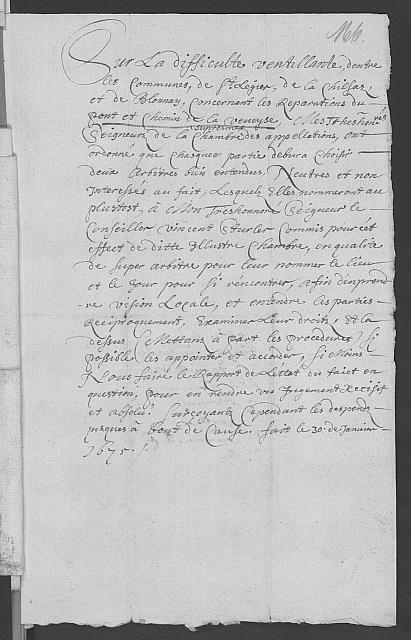 Sur La difficulté ventillante, dentre
les Communes, de St. Légier, de la Chiesaz,
et de Blonnay, concernant les Reparations du
pont et chemin de la veueyse. Mes Treshonnorés
supresmes
Seigneurs de la Chambre des appellations, ont
ordonné que chasque partie debvra Choisir
deux Arbitres bien entendus, Neutres et non
Interessés au fait, Lesquels Elles nommeront au
plustost, à Mon Treshonnoré Seigneur le
Conseiller vincent Sturler Commis pour cest
effect de ditte Illustre Chambre, en qualité
de Super arbitre pour leur nommer le lieu
et le Jour pour si rencontrer, Afin d'enprend-
re vision Locale, et entendre les parties
Reciproquement, Examiner Leur droits, Et la
dessus (Mettans à part les procedures) Si
possible les appointer et accorder, Si Moins
Nous faire le Rapport de Lestat du faict en
question, pour en rendre un Jugement decisif
et absolu. Surçoyants Cependant les despends
jusques à bout de Cause. fait le 30. de Janvier
1675.